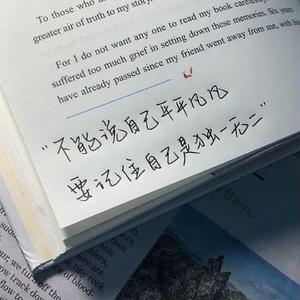 To those who
greater air of truth to my story.
For I do not want any one to read my book carelessly
suffered too much grief in setting down these memories. Six years
have already passed since my friend went away from me, with
"不能说自己平平凡凡
要记住自己是独一无二"